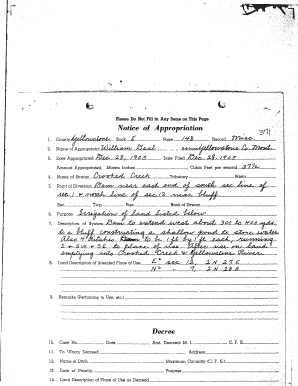 Please Do Not Fill in Any Items on This Page
Notice of Appropriation
371
1. County Yellowstone, Book E Page 148 Record Misc.
2. Name of Appropriator William Deal Address Yellowstone Co Mont.
3. Date Appropriated: Dec. 23, 1905 Date Filed Dec. 28, 1905
Amount Appropriated, Miners Inches Cubic Feet per second 37½
4. Name of Stream Crooked Creek Tributary Basin
5. Point of Diversion Dam near east end of south sec. line of
sec. 1 & north line of sec. 12 near bluff
Sec. Twp. Rge. Bank of Stream
6. Purpose Irrigation of land listed below
7. Description of System Dam to extend west about 300 to 400 yds.
to a bluff constructing a shallow pond to store water
Also 4 ditches to be 1 ft by 1 ft each, running
S & SW & SE to place of use. After use on land
emptying into Crooked Creek & Yellowstone River
8. Land Description of Intended Place of Use E² sec. 12, 2N 27E
N² " 7, 2N 28E
9. Remarks (Pertaining to Use, etc.)
Decree
10. Case No. Date Amt. Decreed: M. I. C. F. S.
11. To Whom Decreed Address
12. Name of Ditch Maximum Capacity (C. F. S.)
13. Date of Priority Purpose
14. Land Description of Place of Use as Decreed